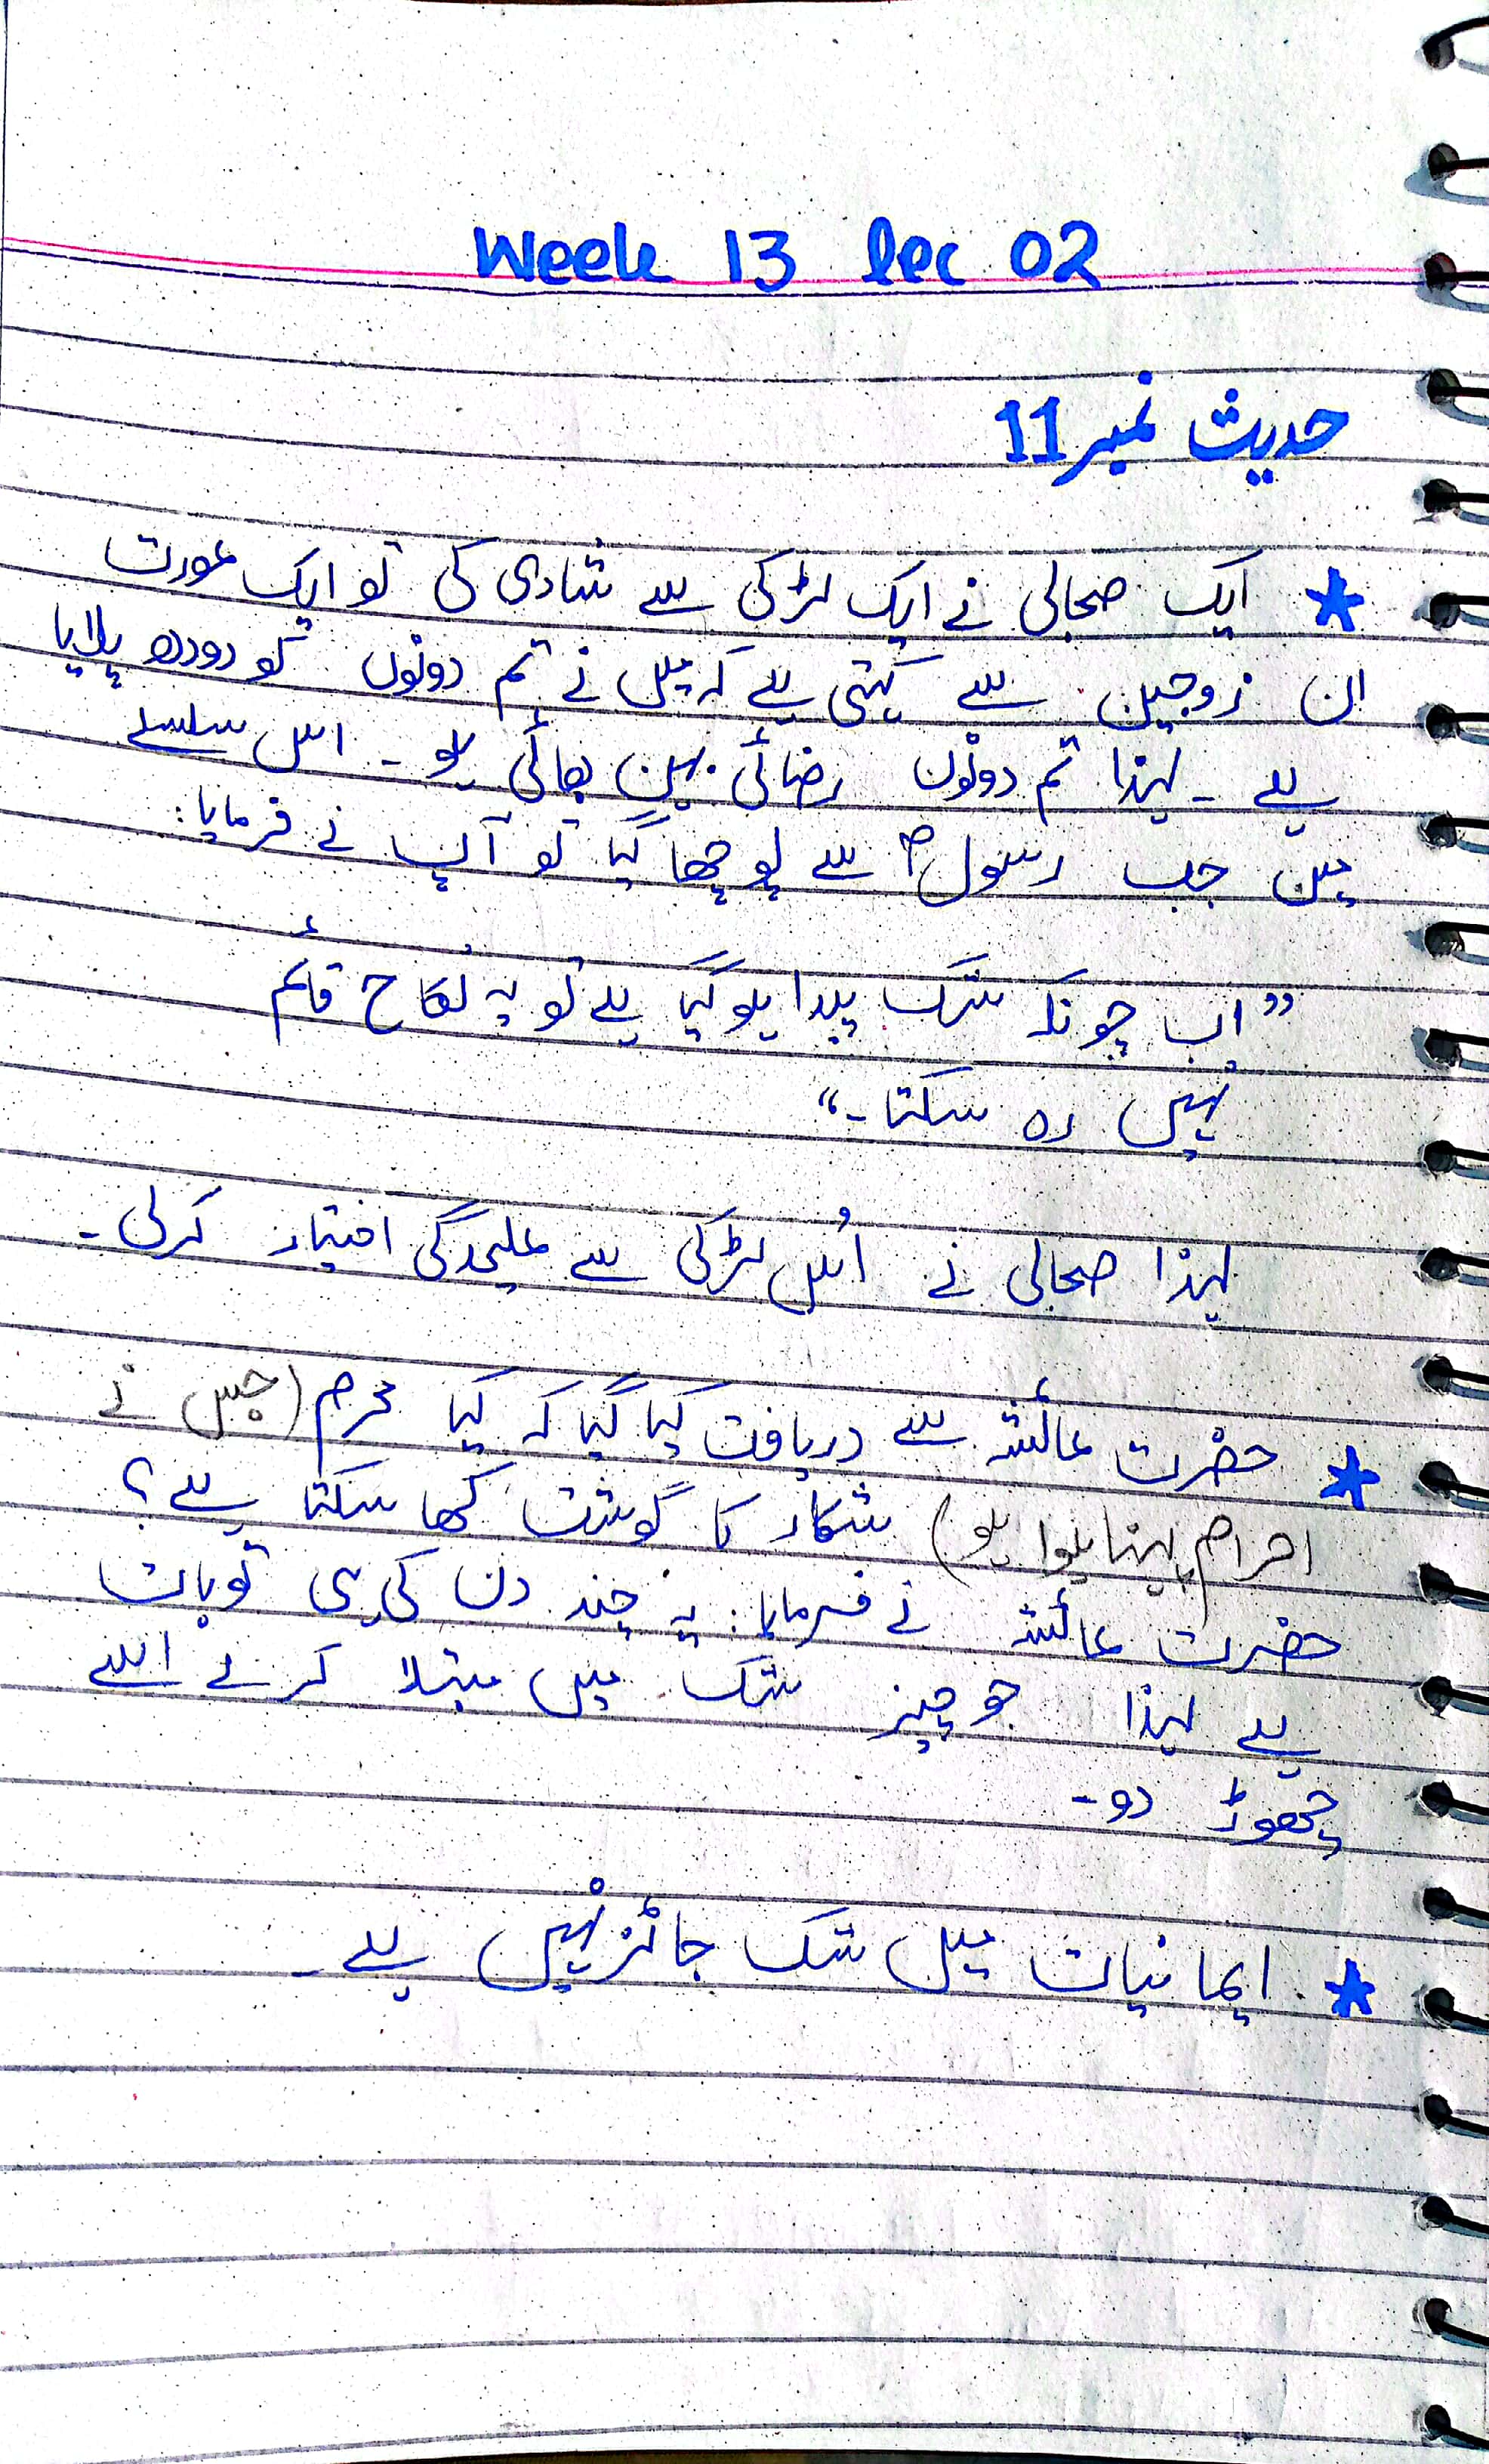 Week 13 lec 02
حدیث نمبر 11
* ایک صحابی نے ایک لڑکی سے شادی کی تو ایک عورت
ان زوجین سے کہتی ہے کہ میں نے تم دونوں کو دودھ پلایا
ہے ۔ لہذا تم دونوں رضائی بہن بھائی ہو ۔ اس سلسلے
میں جب رسولؐ سے پوچھا گیا تو آپ نے فرمایا:
”اب چونکہ شک پیدا ہوگیا ہے تو یہ نکاح قائم
نہیں رہ سکتا ۔“
لہذا صحابی نے اُس لڑکی سے علیحدگی اختیار کرلی ۔
* حضرت عائشہ سے دریافت کیا گیا کہ کیا محرم (جس نے
احرام پہنا ہوا ہو) شکار کا گوشت کھا سکتا ہے؟
حضرت عائشہ نے فرمایا: یہ چند دن کی ہی تو بات
ہے لہذا جو چیز شک میں مبتلا کرے اسے
چھوڑ دو ۔
* ایمانیات میں شک جائز نہیں ہے ۔